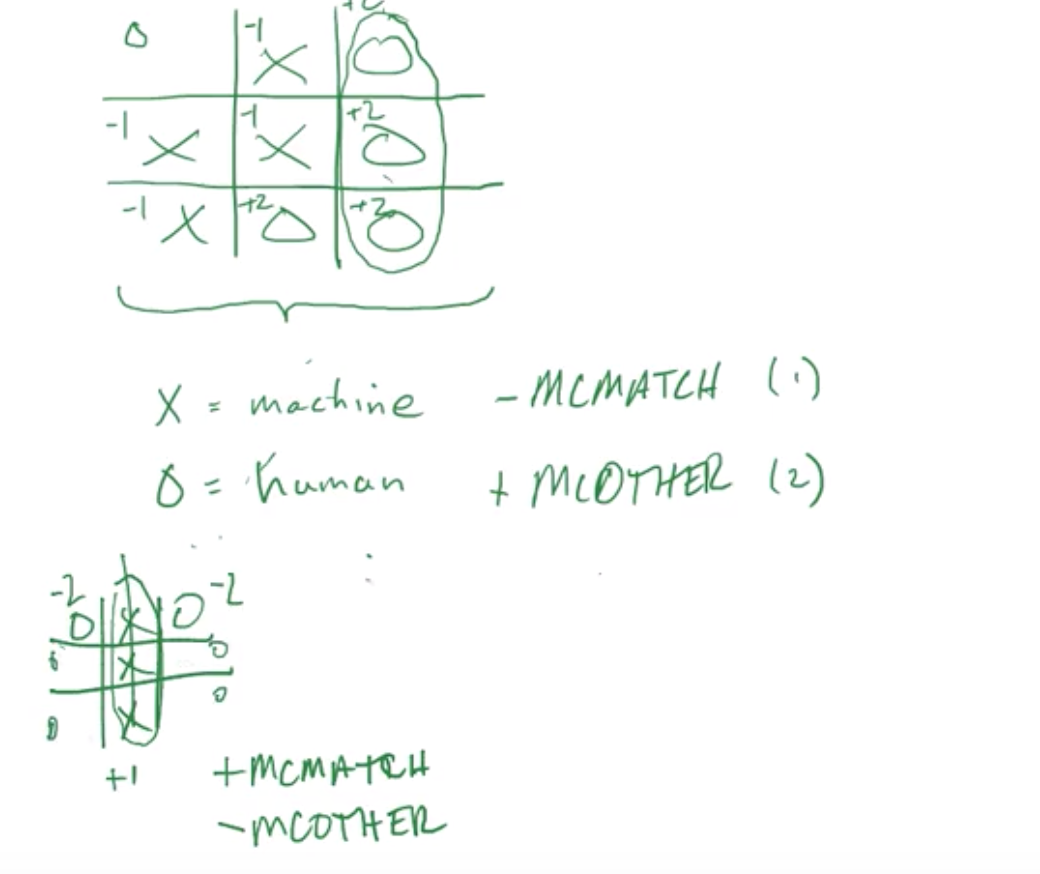 0 -1 X +2 O
-1 X -1 X +2 O
-1 X +2 O +2 O
X = machine - MCMATCH (1)
O = human + MCOTHER (2)
-2 O X O -2
X 0
0 X 0
+1 + MCMATCH
- MCOTHER